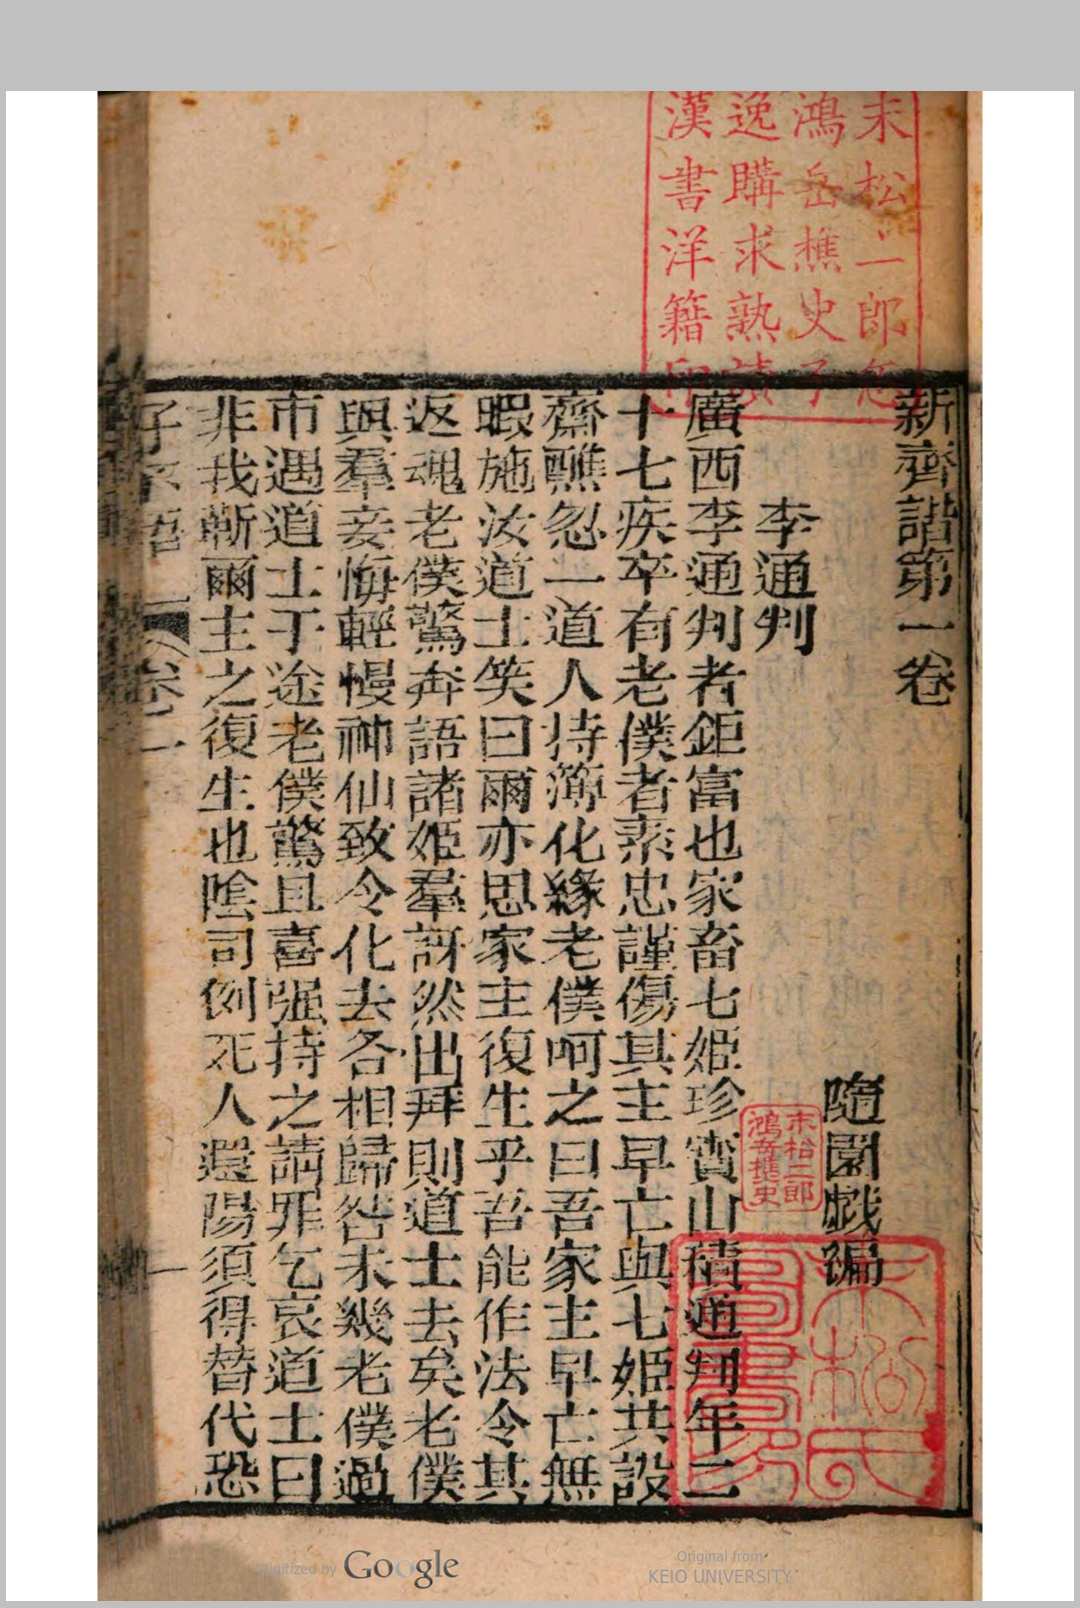 新齊諧第一卷
隨園戲編
李通判
廣西李通判者鉅富也家畜七姬珍寶山積通判年二
十七疾卒有老僕者素忠謹傷其主早亡與七姬共設
齋醮忽一道人持簿化緣老僕呵之曰吾家主早亡無
暇施汝道士笑曰爾亦思家主復生乎吾能作法令其
返魂老僕驚奔語諸姬羣訝然出拜則道士去矣老僕
與羣妾悔輕慢神仙致令化去各相歸咎未幾老僕過
市遇道士于途老僕驚且喜强持之請罪乞哀道士曰
非我靳爾主之復生也陰司例死人還陽須得替代恐
子不語
卷一
一
末松二郎
鴻岳樵史子
逸購求熟讀
漢書洋籍印
末松二郎
鴻岳樵史
末松氏
圖書印
Digitized by Google
Original from
KEIO UNIVERSITY